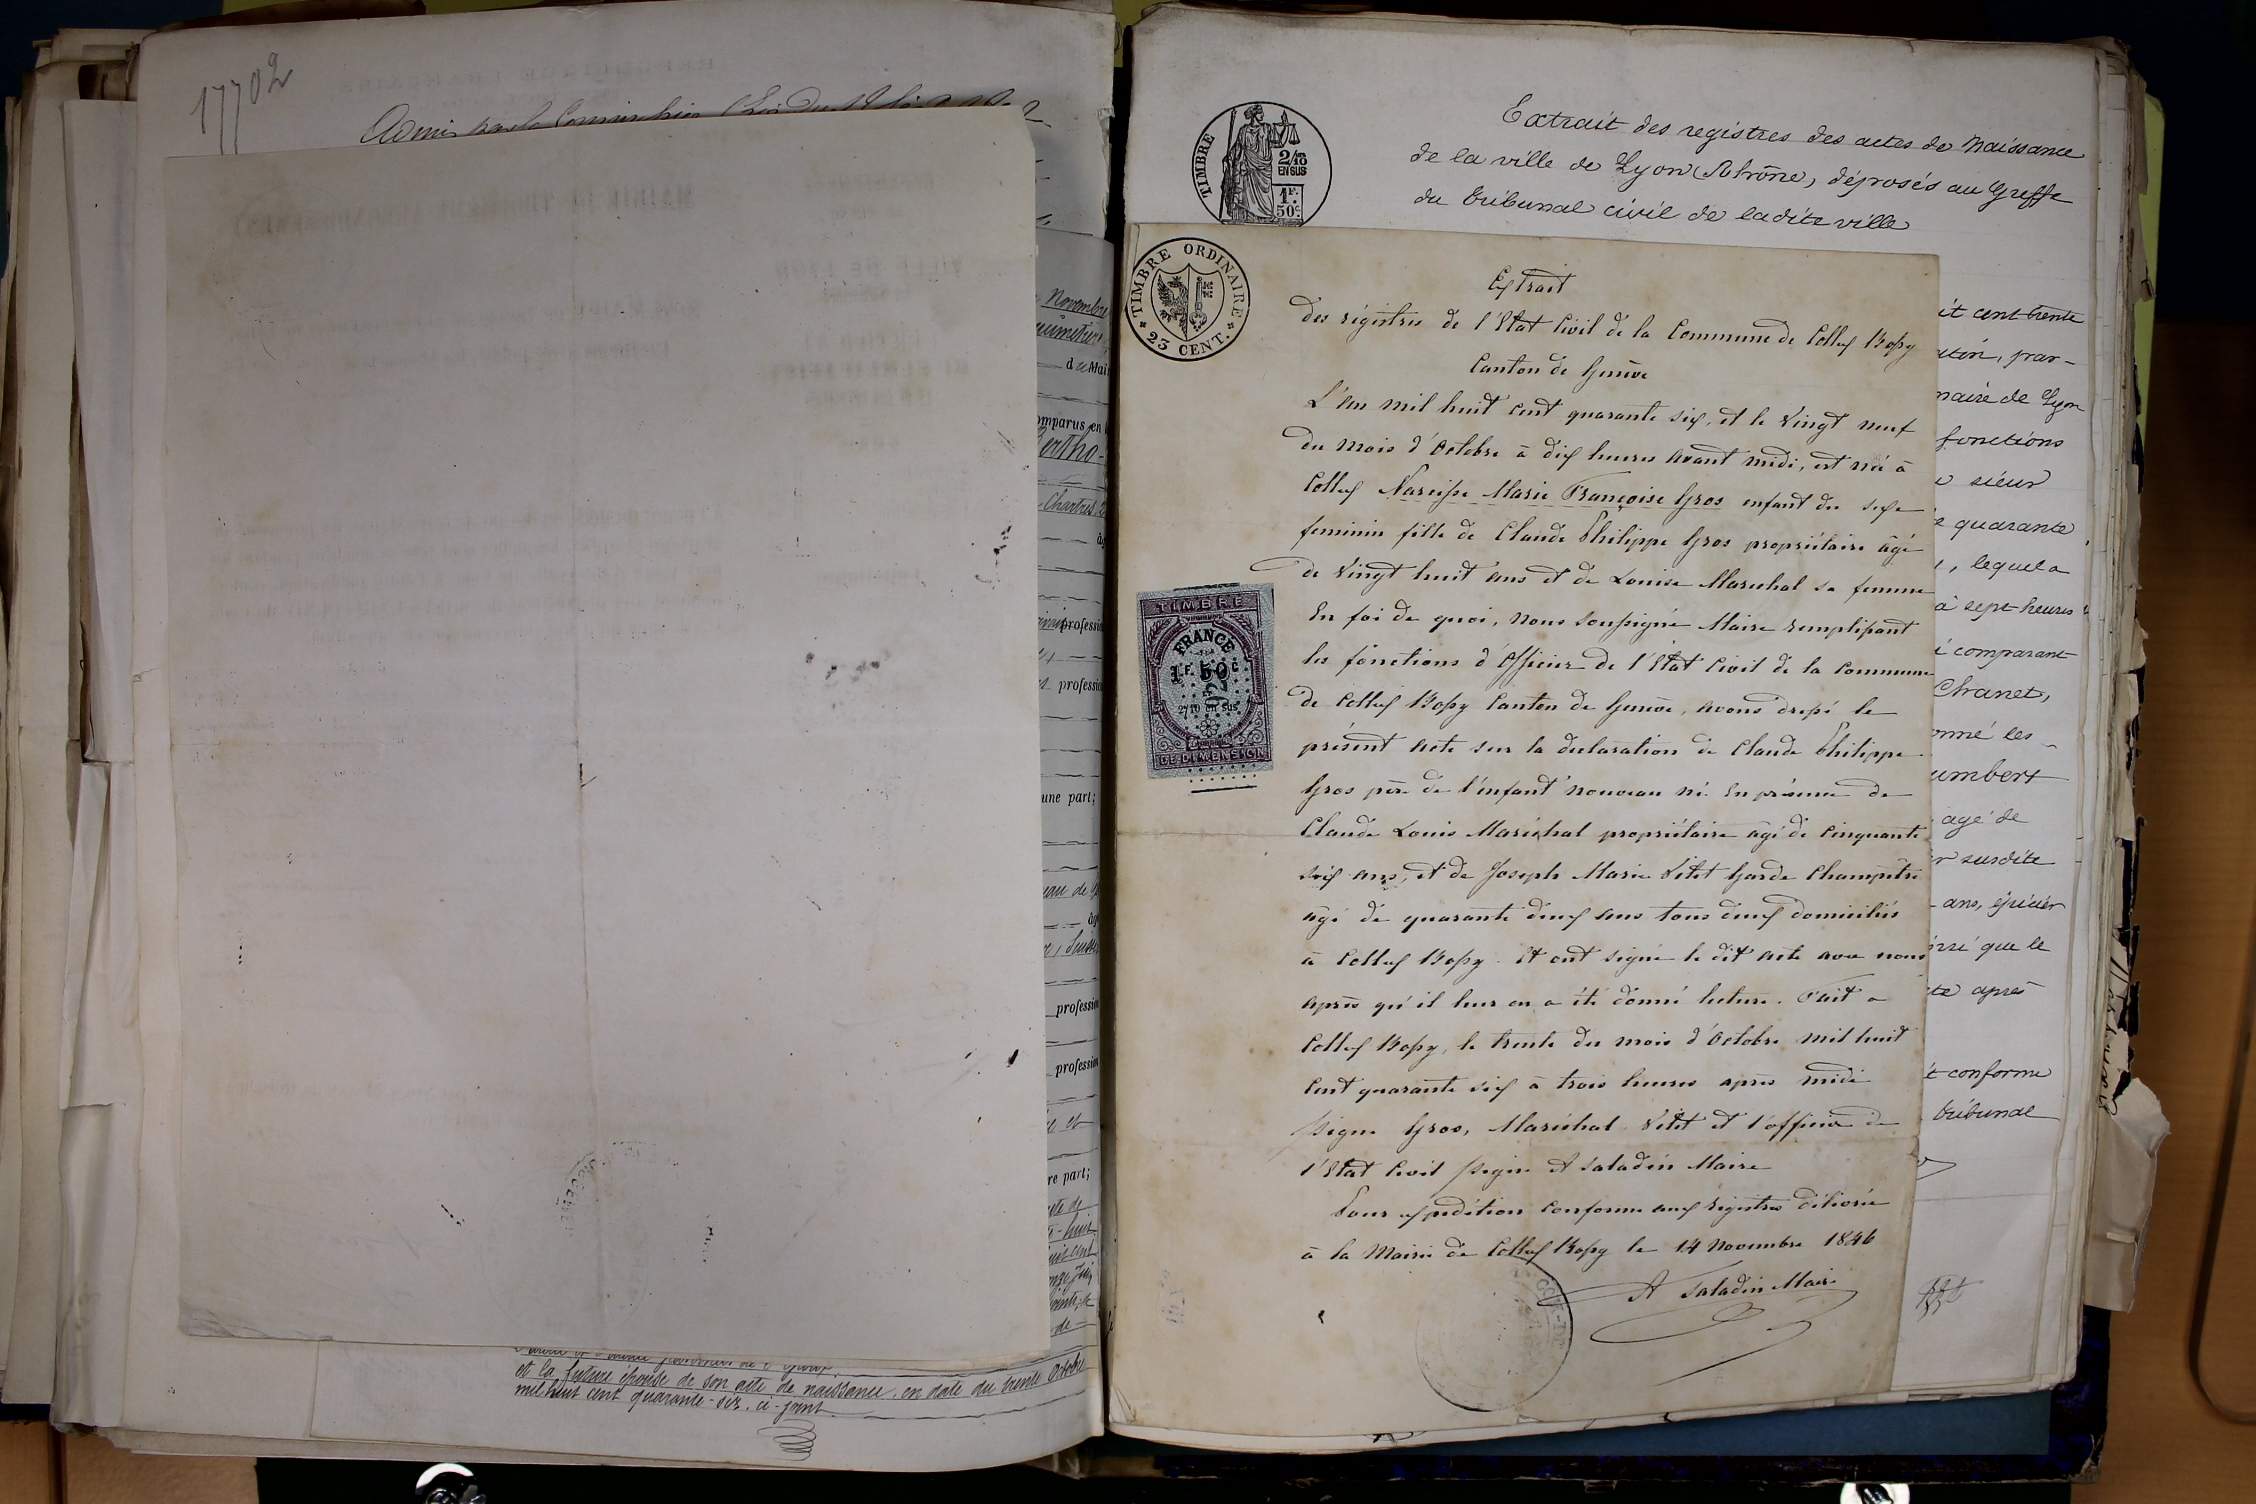 17702
Admis par la Commission
Novembre
d u Mai
comparus en
Bertho-
Chartres
âg
profession
profession
une part;
âg
Suisse
profession
profession
re part;
et la future épouse de son acte de naissance en date du trente Octobre
mil huit cent quarante-six, ci-joint
TIMBRE
2/10
EN SUS
1F.
50c
Extrait des registres des actes de Naissance
de la ville de Lyon (Rhône, déposés au Greffe
du tribunal civil de ladite ville
TIMBRE ORDINAIRE
23 CENT.
Extrait
des régistres de l'Etat Civil de la Commune de Collex Bossy
Canton de Genève
L'An mil huit cent quarante six, et le Vingt neuf
du mois d'Octobre à dix heures Avant midi, est née à
Collex Narcisse Marie Françoise Gros enfant du sexe
feminin fille de Claude Philippe Gros propriétaire âgé
de Vingt huit ans et de Louise Maréchal sa femme
En foi de quoi, nous soussigné Maire remplissant
les fonctions d'Officier de l'Etat Civil de la Commune
de Collex Bossy Canton de Genève, avons dressé le
présent acte sur la déclaration de Claude Philippe
Gros père de l'enfant nouveau né. En présence de
Claude Louis Maréchal propriétaire âgé de Cinquante
six ans, et de Joseph Marie Vitet Garde Champêtre
âgé de quarante deux ans tous deux domiciliés
à Collex Bossy. Et ont signé le dit acte avec nous
après qu'il leur en a été donné lecture. Fait a
Collex Bossy, le trente du mois d'Octobre mil huit
Cent quarante six à trois heures après midi
signé Gros, Maréchal Vitet et l'officier de
l'Etat Civil signé A Saladin Maire
Pour expédition conforme aux régistres délivrée
à la Mairie de Collex Bossy le 14 Novembre 1846
A Saladin Maire
TIMBRE
FRANCE
1F. 50c
2/10 en sus
DE DIMENSION
it cent trente
atin, par-
maire de Lyon
fonctions
sieur
quarante
, lequel a
à sept heures
comparant
Chanet,
onné les
umbert
agé de
susdite
ans, épicier
que le
te après
t conforme
tribunal